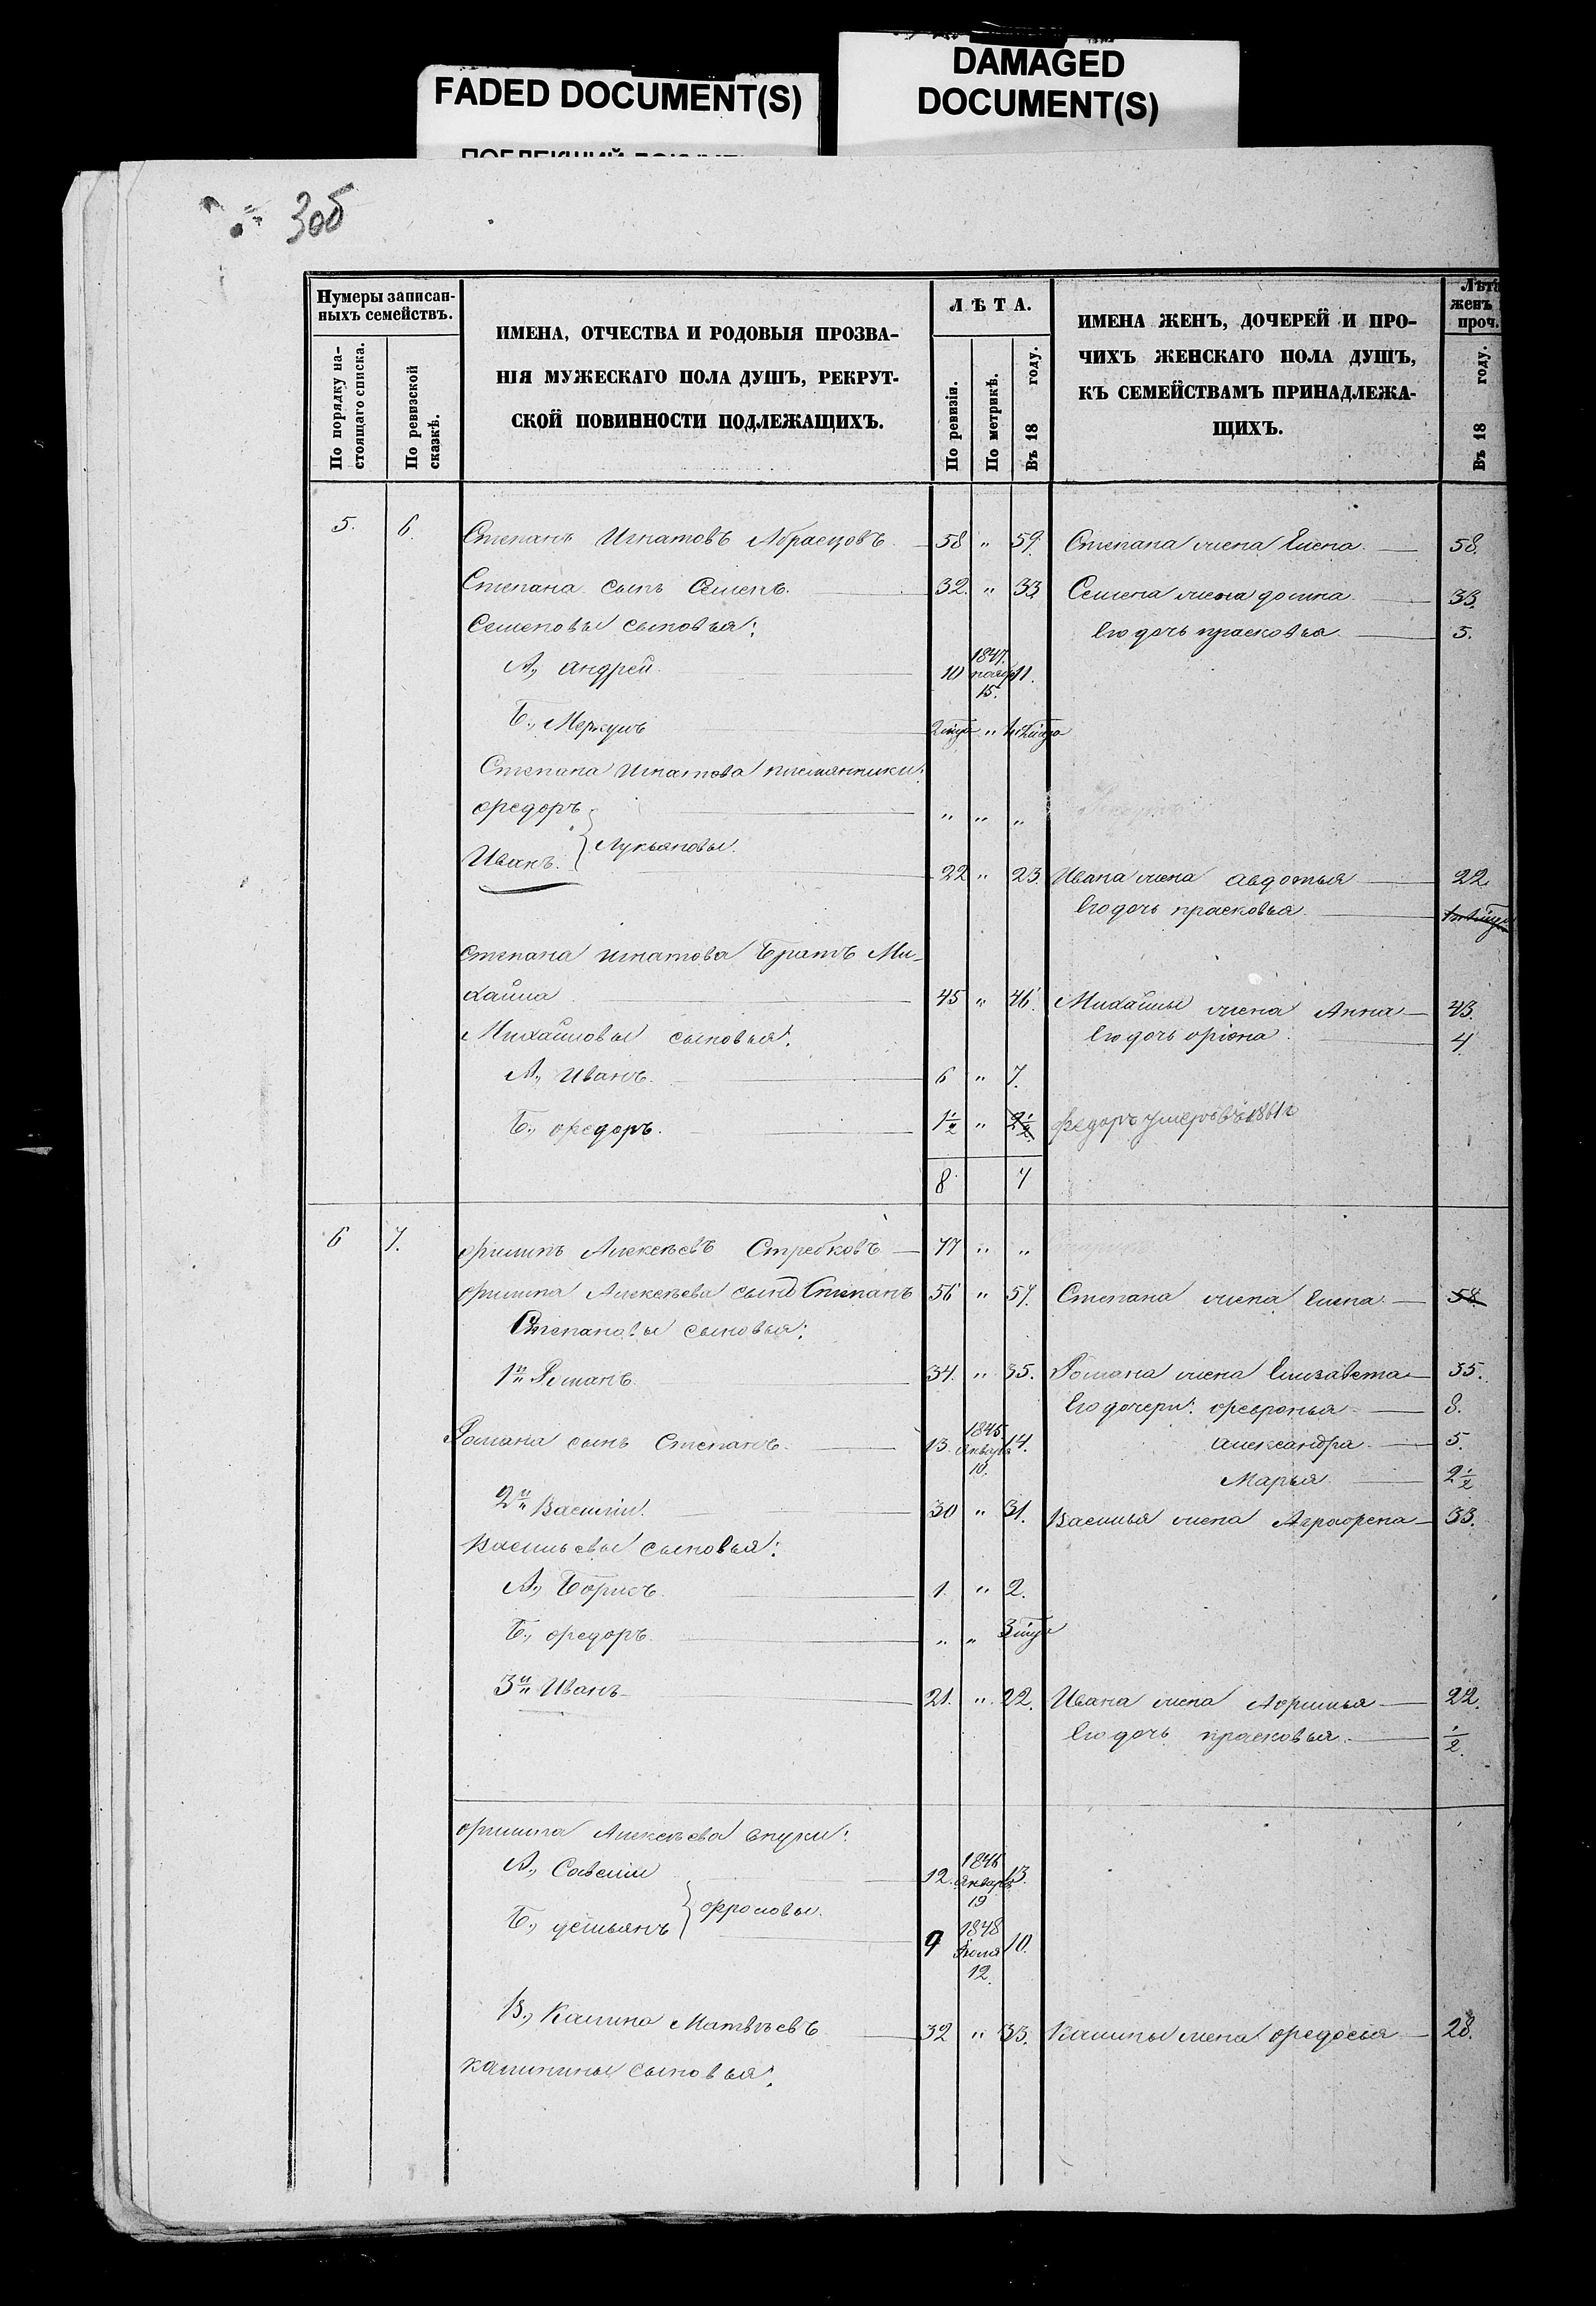 FADED DOCUMENT(S)
DAMAGED
DOCUMENT(S)
305
Нумеры записан-
ныхъ семействъ.
По порядку на-
стоящаго списка.
По ревизской
сказкѣ.
ИМЕНА, ОТЧЕСТВА И РОДОВЫЯ ПРОЗВА-
НІЯ МУЖЕСКАГО ПОЛА ДУШЪ, РЕКРУТ-
СКОЙ ПОВИННОСТИ ПОДЛЕЖАЩИХЪ.
ЛѢТА.
По ревизіи.
По метрикѣ.
Въ 18 году.
ИМЕНА ЖЕНЪ, ДОЧЕРЕЙ И ПРО-
ЧИХЪ ЖЕНСКАГО ПОЛА ДУШЪ,
КЪ СЕМЕЙСТВАМЪ ПРИНАДЛЕЖА-
ЩИХЪ.
Лѣта
женъ
проч.
Въ 18 году.
5. 6. Степанъ Игнатовъ Абрасцовъ 58 " 59. Степана жена Елена 58.
Степана сынъ Семенъ 32. " 33 Семена жена Домна 33.
Семеновы сыновья: Его дочь Прасковья 5.
А., Андрей 10 1847. ноябр 15. 11.
Б., Меркулъ "
Степана Игнатова племянники:
Федоръ " " "
Иванъ. } Лукьяновы. 22 " 23. Ивана жена Авдотья 22.
Его дочь Прасковья
Степана Игнатова братъ Ми-
хайла 45 " 46. Михайлы жена Анна 43.
Михайловы сыновья: Его дочь 4.
А., Иванъ 6 " 7.
Б., Федоръ. 1½ " 2½ Федоръ умеръ въ 1861 г
8 7
6 7. Филипъ Алексѣевъ Стребковъ 77 " "
Филипа Алексѣева сынъ Степанъ 56 " 57. Степана жена Елена 58.
Степановы сыновья:
1й Романъ 34. " 35. Романа жена Елизавета 35.
Его дочери: Февронья 8.
Романа сынъ Степанъ 13. 1845 Январь 10. 14. Александра 5.
Марья 2½
2й Василій. 30 " 31. Василья жена Аграфена 33.
Васильевы сыновья:
А., Борисъ 1. " 2.
Б., Федоръ " "
3й Иванъ 21. " 22. Ивана жена Афимья 22.
Его дочь Прасковья ½.
Филипа Алексѣева внуки:
А., Савелій 12. 1846 Январь 19 13.
Б., Устьянъ } Фроловы. 9 1848 Іюля 12. 10.
В., Калина Матвѣевъ 32 " 33. Калины жена Федосья 28.
Калинины сыновья: